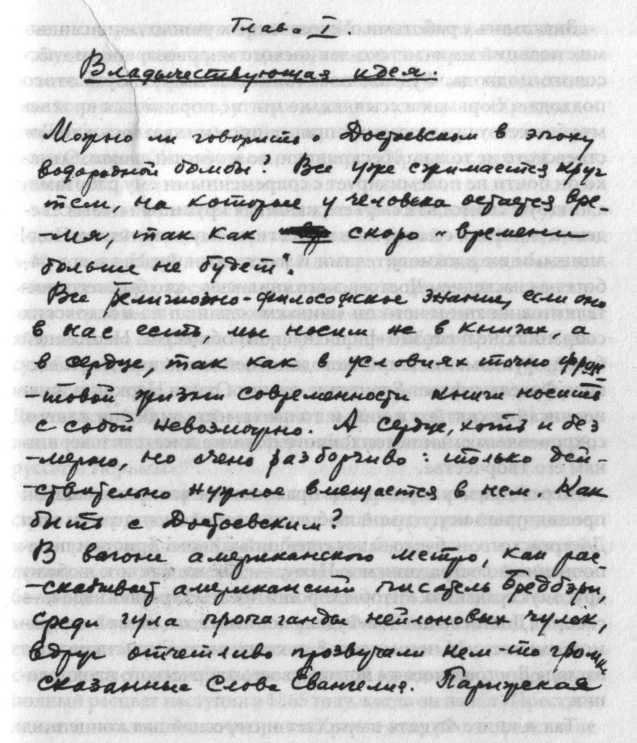 Глава I.
Владычествующая идея.
Можно ли говорить о Достоевском в эпоху
водородной бомбы? Все уже сжимается круг
тем, на которые у человека остается вре-
-мя, так как скоро "времени
больше не будет".
Все религиозно-философское знание, если оно
в нас есть, мы носим не в книгах, а
в сердце, так как в условиях точно фрон-
-товой жизни современности книги носить
с собой невозможно. А сердце, хоть и без-
-мерно, но очень разборчиво: только дей-
-ствительно нужное вмещается в нем. Как
быть с Достоевским?
В вагоне американского метро, как рас-
-сказывает американский писатель Бредбэри,
среди гула пропаганды нейлоновых чулок,
вдруг отчетливо прозвучали кем-то громко
сказанные слова Евангелия. Парижская